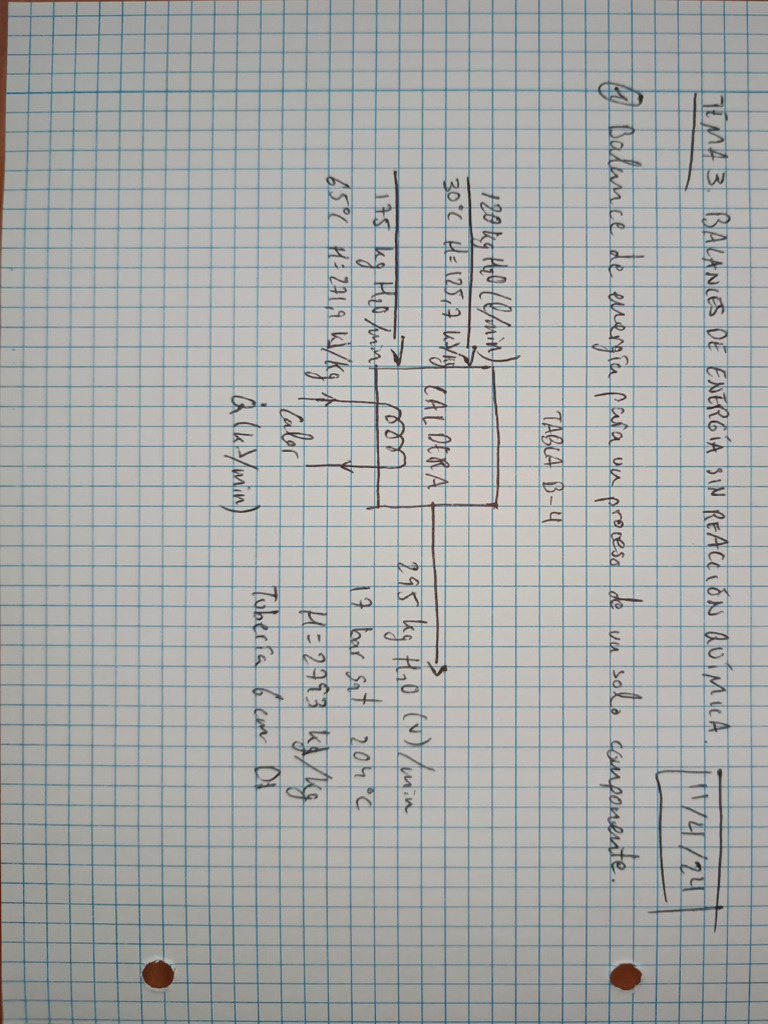 TEMA 3. BALANCES DE ENERGÍA SIN REACCIÓN QUÍMICA.
11/4/24
① Balance de energía para un proceso de un solo componente.
TABLA B-4
120 kg H2O (l/min)
30°C H=125,7 kJ/kg
CALDERA
175 kg H2O/min
65°C H=271,9 kJ/kg
Calor
Q̇ (kJ/min)
295 kg H2O (v)/min
17 bar sat 204°C
H=2793 kJ/kg
Tubería 6 cm DI